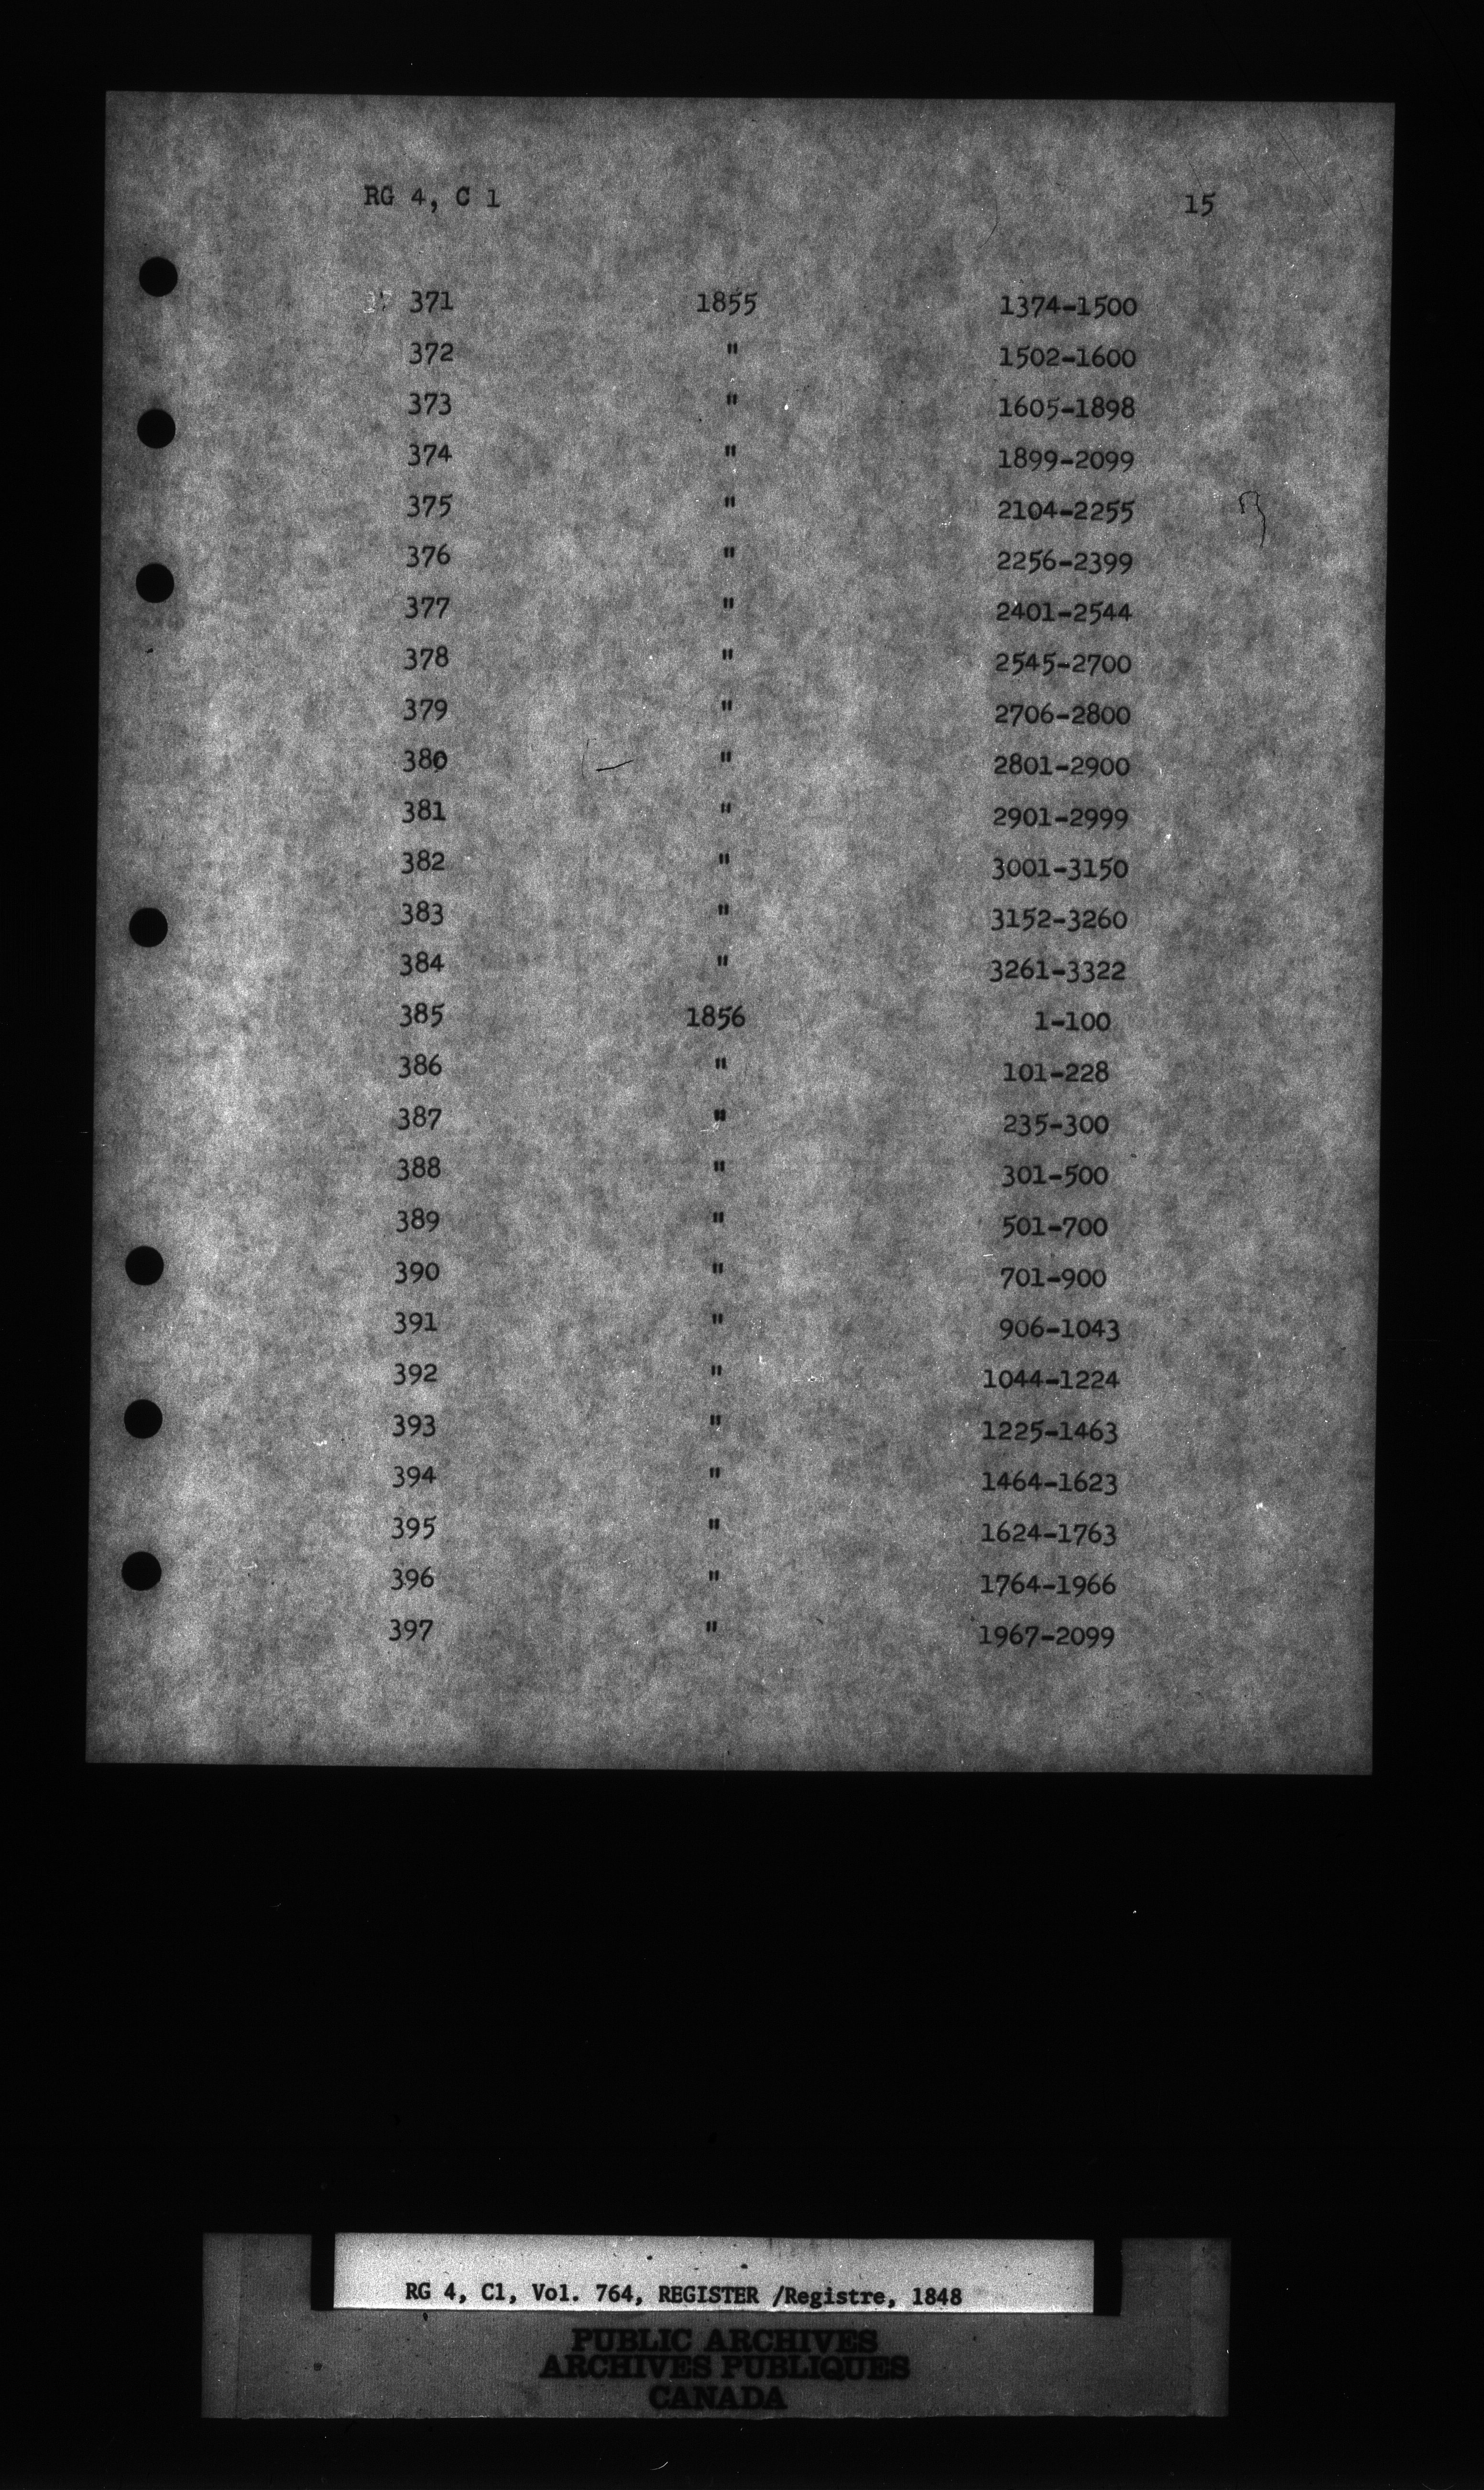 RG 4, C 1 15
371 1855 1374-1500
372 " 1502-1600
373 " 1605-1898
374 " 1899-2099
375 " 2104-2255
376 " 2256-2399
377 " 2401-2544
378 " 2545-2700
379 " 2706-2800
380 " 2801-2900
381 " 2901-2999
382 " 3001-3150
383 " 3152-3260
384 " 3261-3322
385 1856 1-100
386 " 101-228
387 " 235-300
388 " 301-500
389 " 501-700
390 " 701-900
391 " 906-1043
392 " 1044-1224
393 " 1225-1463
394 " 1464-1623
395 " 1624-1763
396 " 1764-1966
397 " 1967-2099
RG 4, C1, Vol. 764, REGISTER /Registre, 1848
PUBLIC ARCHIVES
ARCHIVES PUBLIQUES
CANADA